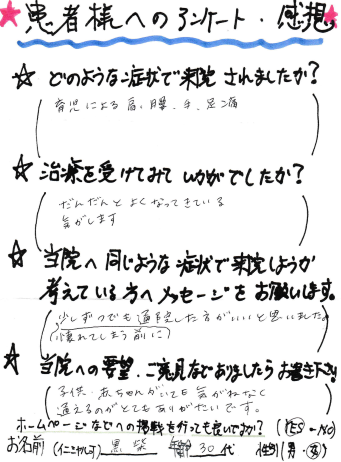 患者様へのアンケート・感想
☆ どのような症状で来院されましたか？
育児による肩、腰、手、足の痛
☆ 治療を受けてみていかがでしたか？
だんだんとよくなってきている
気がします
☆ 当院へ同じような症状で来院しようか
考えている方へメッセージをお願いします。
少しずつでも通院した方がいいと思いました。
(慣れてしまう前に)
☆ 当院への要望、ご意見などありましたらお書き下さい
子供・赤ちゃんがいても気がねなく
通えるのがとてもありがたいです。
ホームページなどへの掲載を行っても良いですか？ (YES・NO)
お名前 (イニシャル可) 黒柴 年齢 30代 性別 (男・女)